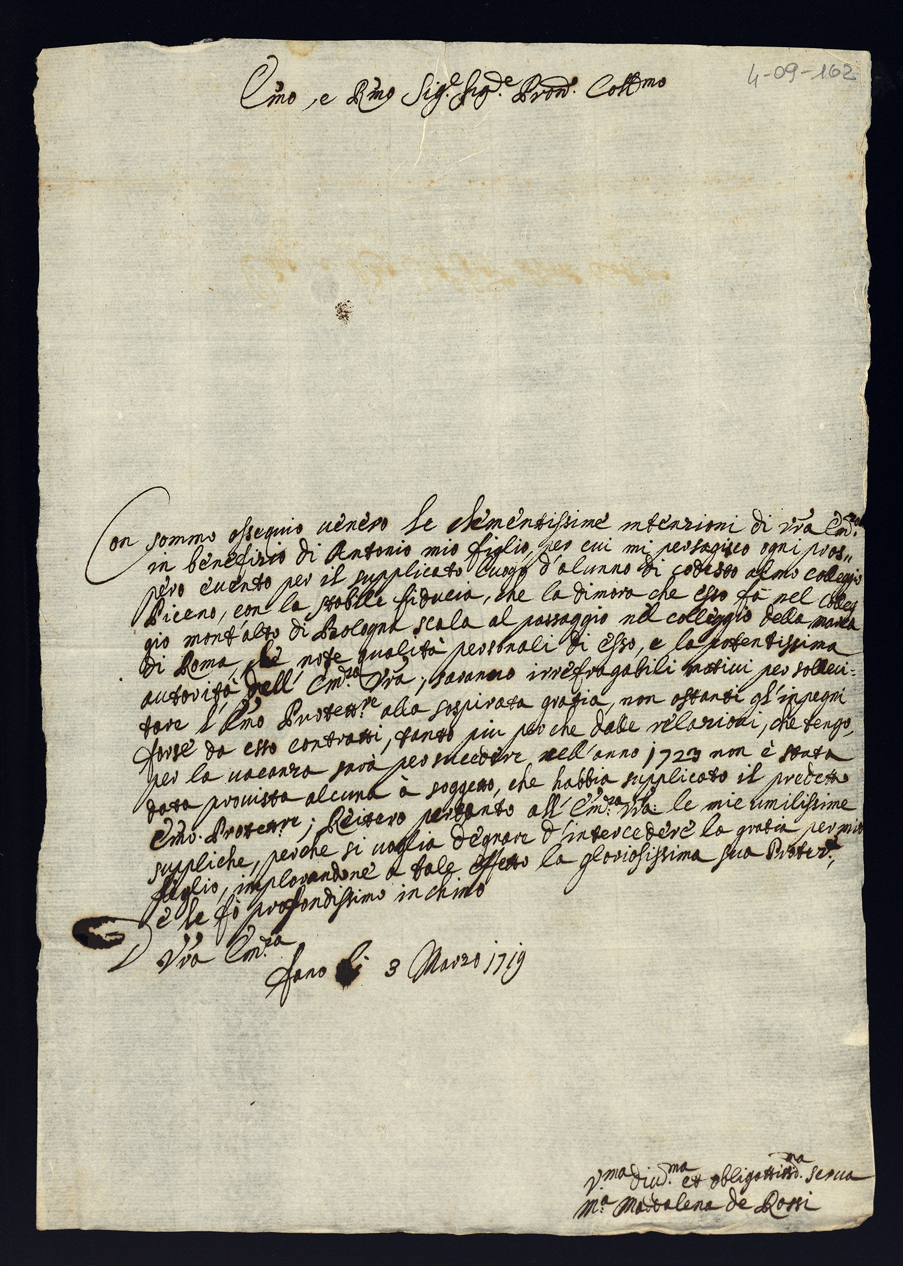 4-09-162
Emo, e Rmo Sig.e Sig.e Pron. Collmo
Con sommo ossequio venero le clementissime intenzioni di vra Em.za
in benefizio di Antonio mio figlio, per cui mi persagisco ogni pros=
pero evento per il supplicato luogo d'alunno di codesto almo collegio
Piceno, con la stabile fiducia, che la dimora che esso fà nel colleg
gio mont'alto di Bologna scala al passaggio nel colleggio della marca
di Roma, le note qualità personali di esso, e la potentissima
autorità dell' Em.za Vra, saranno irrefragabili motivi per solleci=
tare l'Emo Protett.re alla sospirata gratia, non ostanti gl'impegni
forse da esso contratti, tanto più perche dalle relazioni, che tengo,
per la vacanza sarà per succedere nell'anno 1723 non è stata
data provista alcuna à soggetto, che habbia supplicato il predetto
Emo Protett.re; Reitero pertanto all' Em.za Vra le mie umilissime
suppliche, perche si voglia degnare d'intercedere la gratia per mio
figlio, implorandone a tale effetto la gloriosissima sua Protez.e,
e le fò profondissimo inchino
D Vra Em.za
Fano li 3 Marzo 1719
V.ma div.ma et obligatissma serva
M.a Maddalena de Rossi